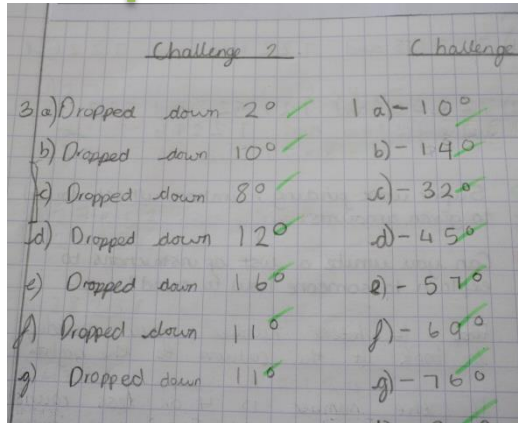 Challenge 2
3 a) Dropped down 2°
b) Dropped down 10°
c) Dropped down 8°
d) Dropped down 12°
e) Dropped down 16°
f) Dropped down 11°
g) Dropped down 11°
Challenge
1 a) - 10°
b) - 14°
c) - 32°
d) - 45°
e) - 57°
f) - 69°
g) - 76°